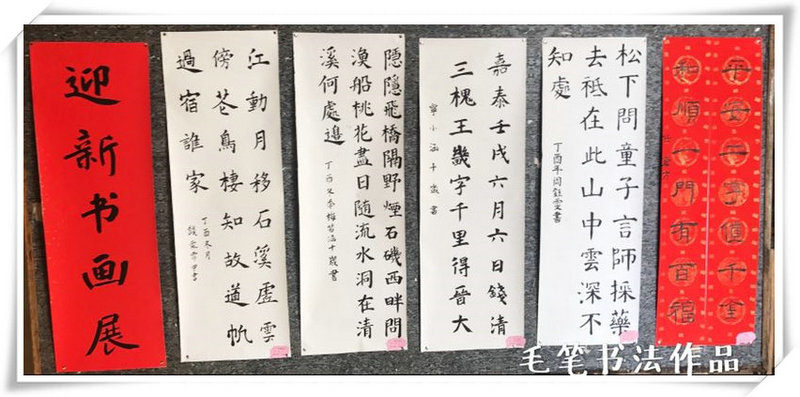 迎新书画展
江動月移石溪虛雲
傍苍鳥棲知故道帆
過宿誰家
丁酉冬月
隱隱飛橋隔野煙石磯西畔問
漁船桃花盡日隨流水洞在清
溪何處邊
嘉泰壬戌六月六日錢清
三槐王畿字千里得晉大
松下問童子言師採藥
去祗在此山中雲深不
知處
丁酉年周鈺雯書
平安二字值千金
和順一門有百福
毛笔书法作品